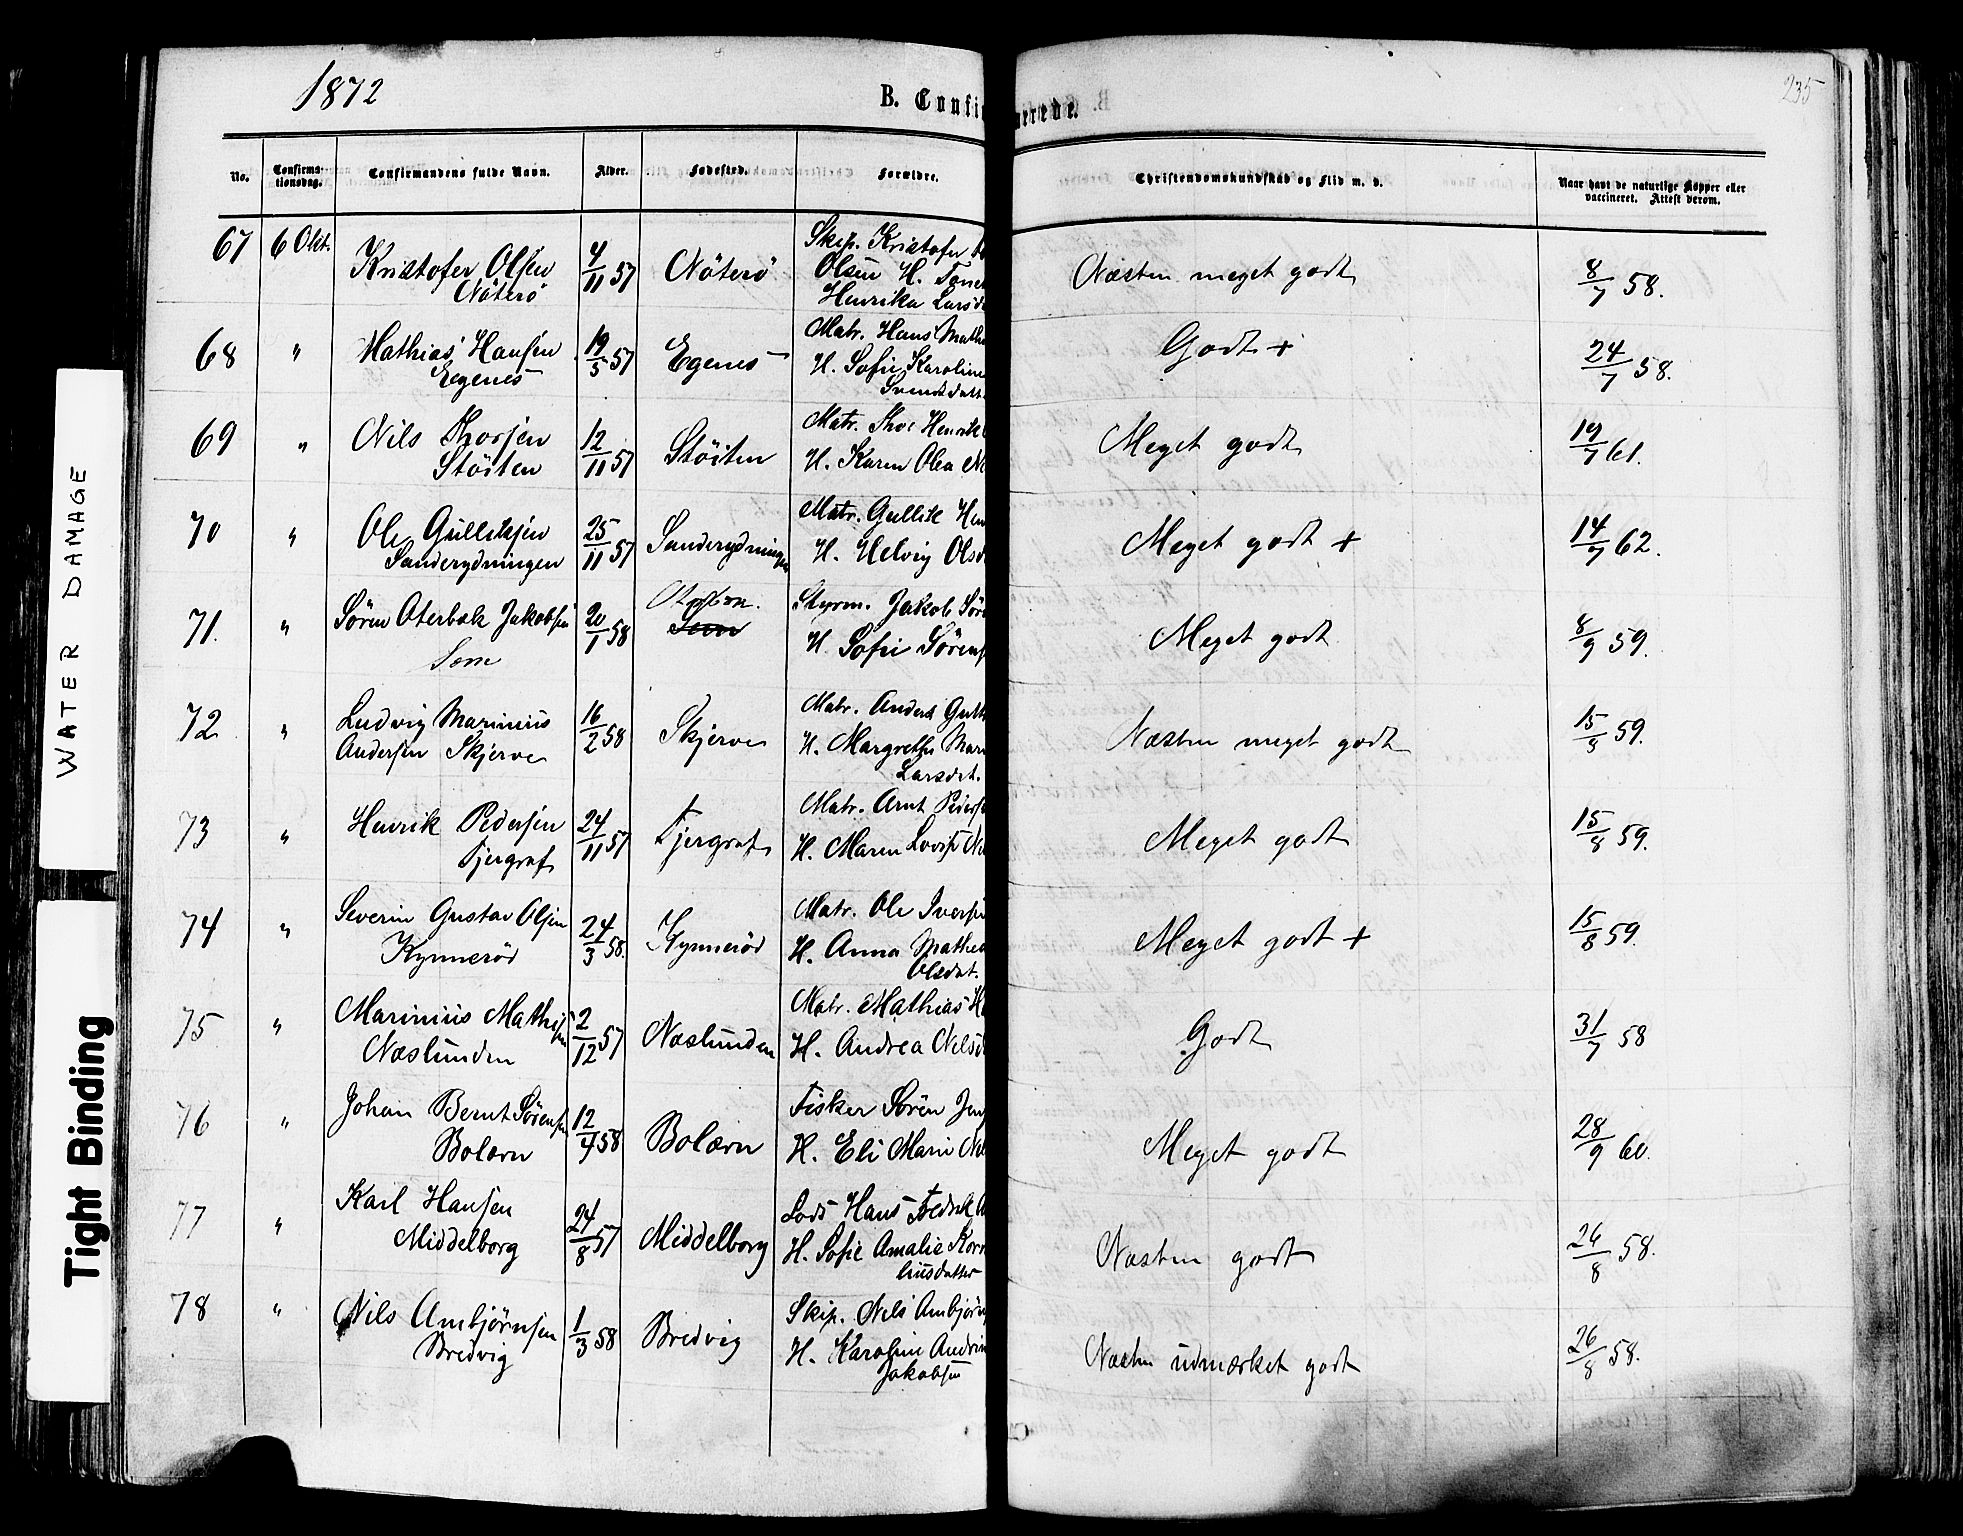 1872
B. Confirmerede.
235
No.
Confirmationsdag.
Confirmandens fulde Navn.
Alder.
Fødested.
Forældre.
Christendomskundskab og Flid m. v.
Naar havt de naturlige Kopper eller vaccineret. Attest derom.
67 6 Okt. Kristofer Olsen Nöterö 4/11 57 Nöterö Skip. Kristofer Olsen H. Henrika Næsten meget godt 8/7 58.
68 " Mathias Hansen Egenes 19/5 57 Egenes Matr. Hans H. Sofie Karoline Svendsdatt. Godt + 24/7 58.
69 " Nils Thorsen Stöiten 12/11 57 Stöiten Matr. Thor Henrik H. Karen Olea Meget godt 19/7 61.
70 " Ole Gulliksen Sanderydningen 25/11 57 Sanderydningen Matr. Gullik H. Helvig Meget godt + 14/7 62.
71. " Sören Oterbek Jakobsen Sem 20/1 58 Sem Styrm. Jakob H. Sofie Meget godt 8/9 59.
72 " Ludvig Marinius Andersen Skjerve 16/2 58 Skjerve Matr. Anders H. Margrethe Larsdat. Næsten meget godt 15/8 59.
73 " Henrik Pedersen Fjergraf 24/11 57 Fjergraf Matr. Arnt H. Maren Meget godt 15/8 59.
74 " Severin Gustav Olsen Kynneröd 24/3 58. Kynneröd Matr. Ole H. Anna Olsdat. Meget godt + 15/8 59.
75 " Marinius Mathisen Næslunden 2/12 57 Næslunden Matr. Mathias H. Andrea Godt 31/7 58
76 " Johan Bernt Sörensen Bolærn 12/4 58 Bolærn Fisker Sören H. Eli Marie Meget godt 28/9 60.
77 " Karl Hansen Middelborg 24/8 57 Middelborg Lods Hans Fredrik H. Sofie Amalie Korneliusdatter Næsten godt 26/8 58.
78 " Nils Ambjörnsen Bredvig 1/3 58 Bredvig Skip. Nils H. Karoline Jakobsen Næsten udmærket godt 26/8 58.
WATER DAMAGE
Tight Binding